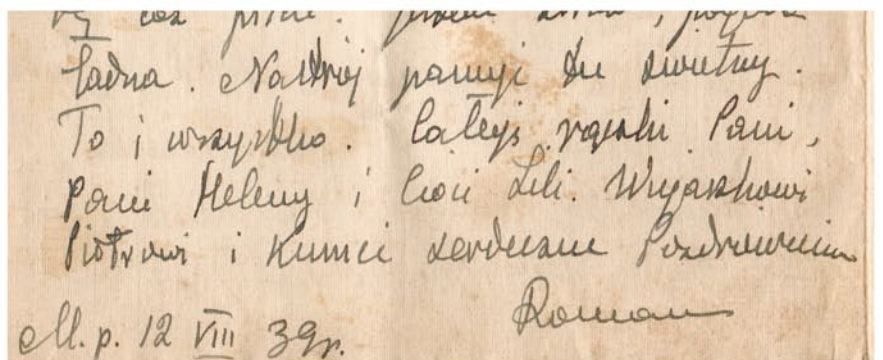 ładna. Nastrój panuje tu świetny.
To i wszystko. Całuję rączki Pani,
Pani Heleny i Cioci Lili. Wujaszkowi
Piotrowi i Kumci serdeczne Pozdrowienia
Roman
M.p. 12 VIII 39r.